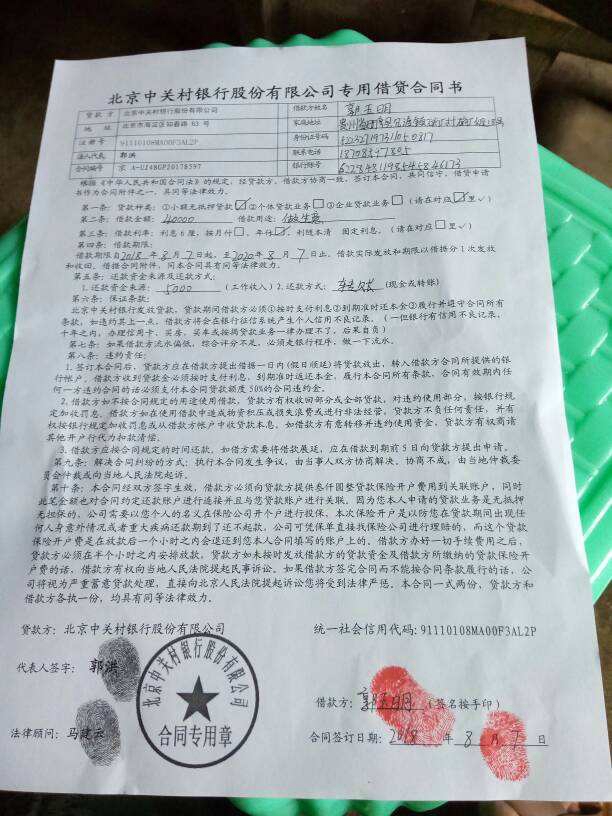 北京中关村银行股份有限公司专用借贷合同书
贷款方 北京中关村银行股份有限公司 借款方姓名 郭玉明
地 址 北京市海淀区知春路 63 号 家庭地址 贵州省
注册号 91110108MA00F3AL2P 身份证号码
法人代表 郭洪 联系电话
合同编号 京 A-UI48GP20178597 银行账号
根据《中华人民共和国合同法》的规定，经贷款方、借款方协商一致，签订本合同，共同信守，借贷申请
书作为合同附件之一，具同等法律效力。
第一条：贷款种类：①小额无抵押贷款☑②个体贷款业务□③企业贷款业务□（请在对应☑里√）
第二条：借款金额：40000 借款用途：做生意
第三条：借款利率：利息 6 厘，按月付□、年付☑、利随本清 固定利息。（请在对应□里√）
第四条：借款期限：
借款期限自 2018 年 8 月 7 日起，至 2020 年 8 月 7 日止。借款实际发放和期限以借据分 1 次发放
和收回。借据合同附件，同本合同具有同等法律效力。
第五条：还款资金来源及还款方式：
1.还款资金来源： 5000 （工作收入）2.还款方式： 转账 （现金或转账）
第六条：保证条款：
北京中关村银行发放贷款，贷款期间借款方必须①按时支付利息②到期准时还本金③履行并遵守合同所有
条款，如违约其上一点，借款方将会在银行征信系统产生个人信用不良记录。（一但银行有信用不良记录，
十年之内，办理信用卡、买房、买车或按揭贷款业务一律办理不了，后果自负）
第七条：如果借款方流水偏低，综合评分不足，必须走银行程序，做一下流水。
第八条：违约责任：
1.签订本合同后，贷款方应在借款方提出借据一日内(假日顺延)将贷款放出，转入借款方合同所提供的银
行帐户。借款方收到贷款金必须按时支付利息、到期准时返还本金，履行本合同所有条款，合同有效期内任
何一方违约合同的话必须支付本合同贷款额度 50%的合同违约金。
2.借款方如不按合同规定的用途使用借款，贷款方有权收回部分或全部贷款，对违约使用部分，按银行规
定加收罚息。借款方如在使用借款中造成物资积压或损失浪费或进行非法经营，贷款方不负任何责任，并有
权按银行规定加收罚息或从借款方帐户中收贷款本息。如借款方有意转移并违约使用资金，贷款方有权商请
其他开户行代为扣款清偿。
3.借款方应按合同规定的时间还款，如借方需要将借款展延，应在借款到期前 5 日向贷款方提出申请。
第九条：解决合同纠纷的方式：执行本合同发生争议，由当事人双方协商解决。协商不成，由当地仲裁委
员会仲裁或向当地人民法院起诉。
第十条：本合同经双方签字生效，借款方必须向贷款方提供叁仟圆整贷款保险开户费用到关联账户，同时
此笔金额也对合同约定还款账户进行连接并且与您贷款账户进行关联。因为您本人申请的贷款业务是无抵押
无担保的，公司需要以您个人的名义在保险公司开个户进行投保，本次保险开户是以防您在贷款期间出现任
何人身意外情况或者重大疾病还款期到了还不起款，公司可凭保单直接找保险公司进行理赔的，而这个贷款
保险开户费是在放款后一个小时内会退还到您本人合同填写的账户上的，借款方办好一切手续费用之后，
贷款方必须在半个小时之内安排放款，贷款方如未按时发放借款方的贷款资金及借款方所缴纳的贷款保险开
户费的话，借款方有权向当地人民法院提起民事诉讼。如果借款方签定合同而不能按合同条款履行的话，公
司将视为严重蓄意贷款处理，直接向北京人民法院提起诉讼您将受到法律严惩。本合同一式两份，贷款方和
借款方各执一份，均具有同等法律效力。
贷款方：北京中关村银行股份有限公司 统一社会信用代码：91110108MA00F3AL2P
代表人签字： 郭洪
借款方： 郭玉明 （签名按手印）
法律顾问：马建云
合同签订日期： 2018 年 8 月 7 日
北京中关村银行股份有限公司
合同专用章